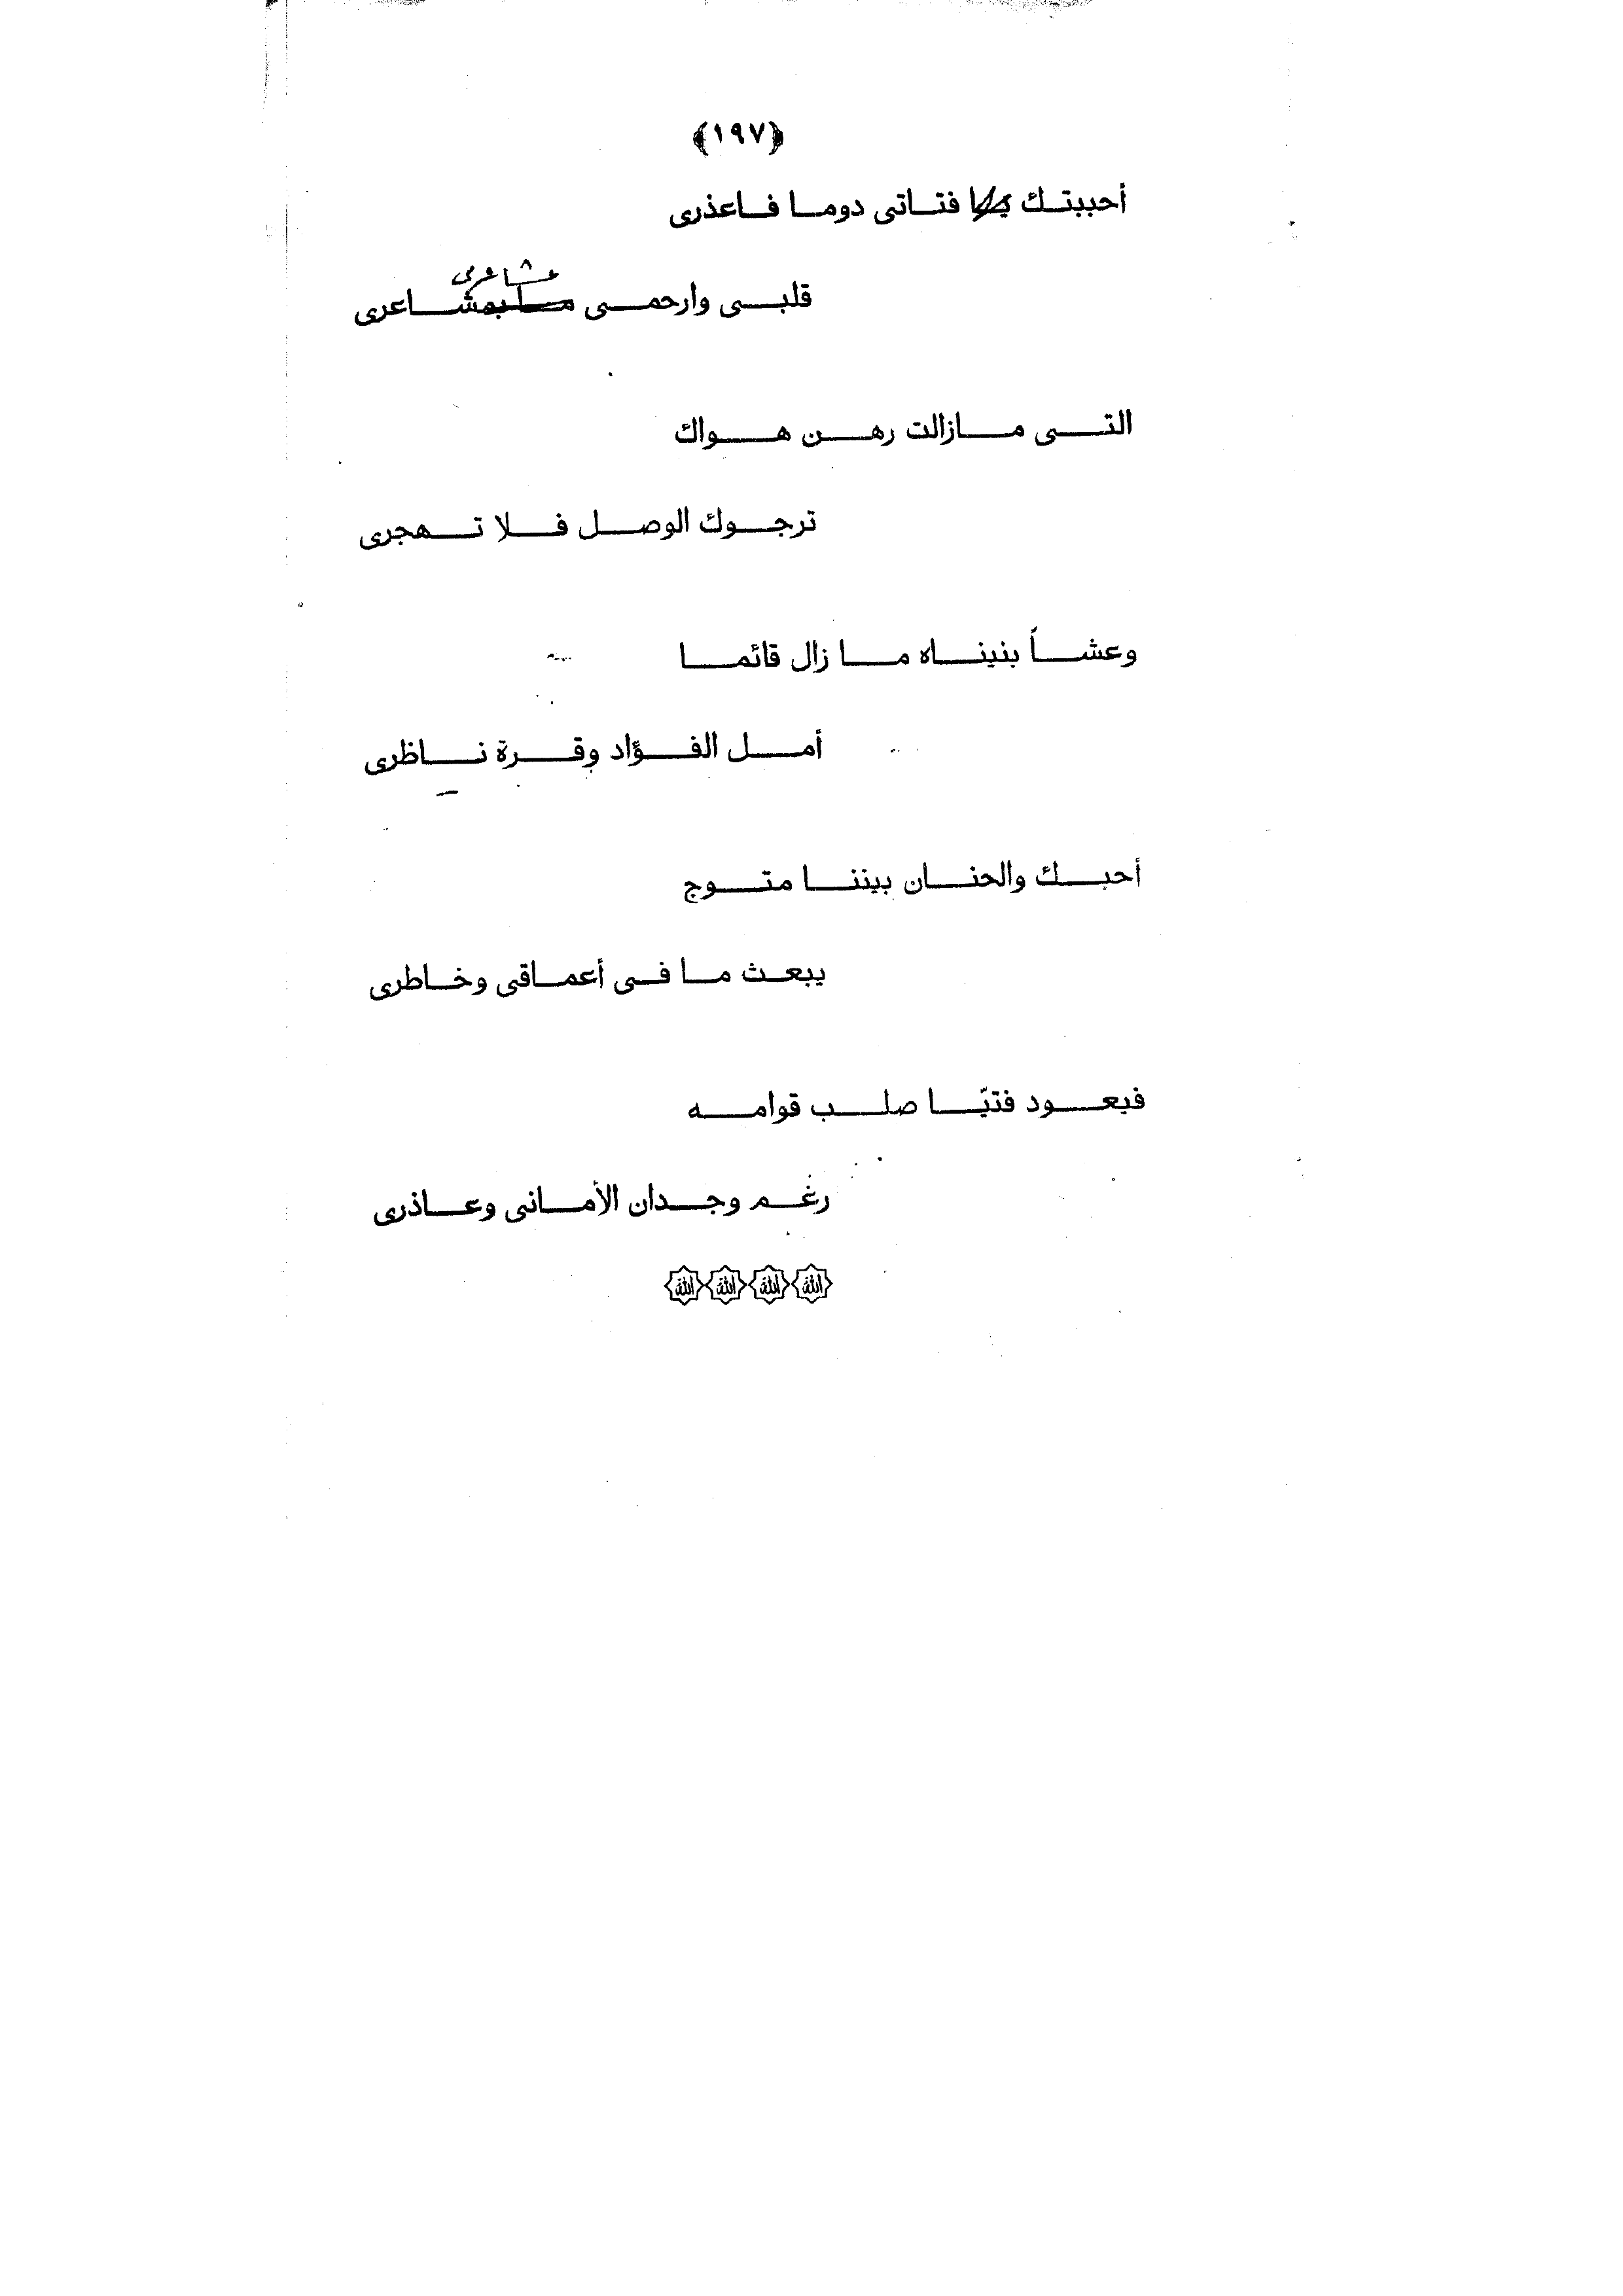 ﴿١٩٧﴾
أحببتك يا فتاتى دوما فاعذرى
مشاعرى
قلبى وارحمى ما بمشاعرى
التى مازالت رهن هواك
ترجوك الوصل فلا تهجرى
وعشاً بنيناه ما زال قائما
أمل الفؤاد وقرة ناظرى
أحبك والحنان بيننا متوج
يبعث ما فى أعماقى وخاطرى
فيعود فتيّا صلب قوامه
رغم وجدان الأمانى وعاذرى
الله الله الله الله